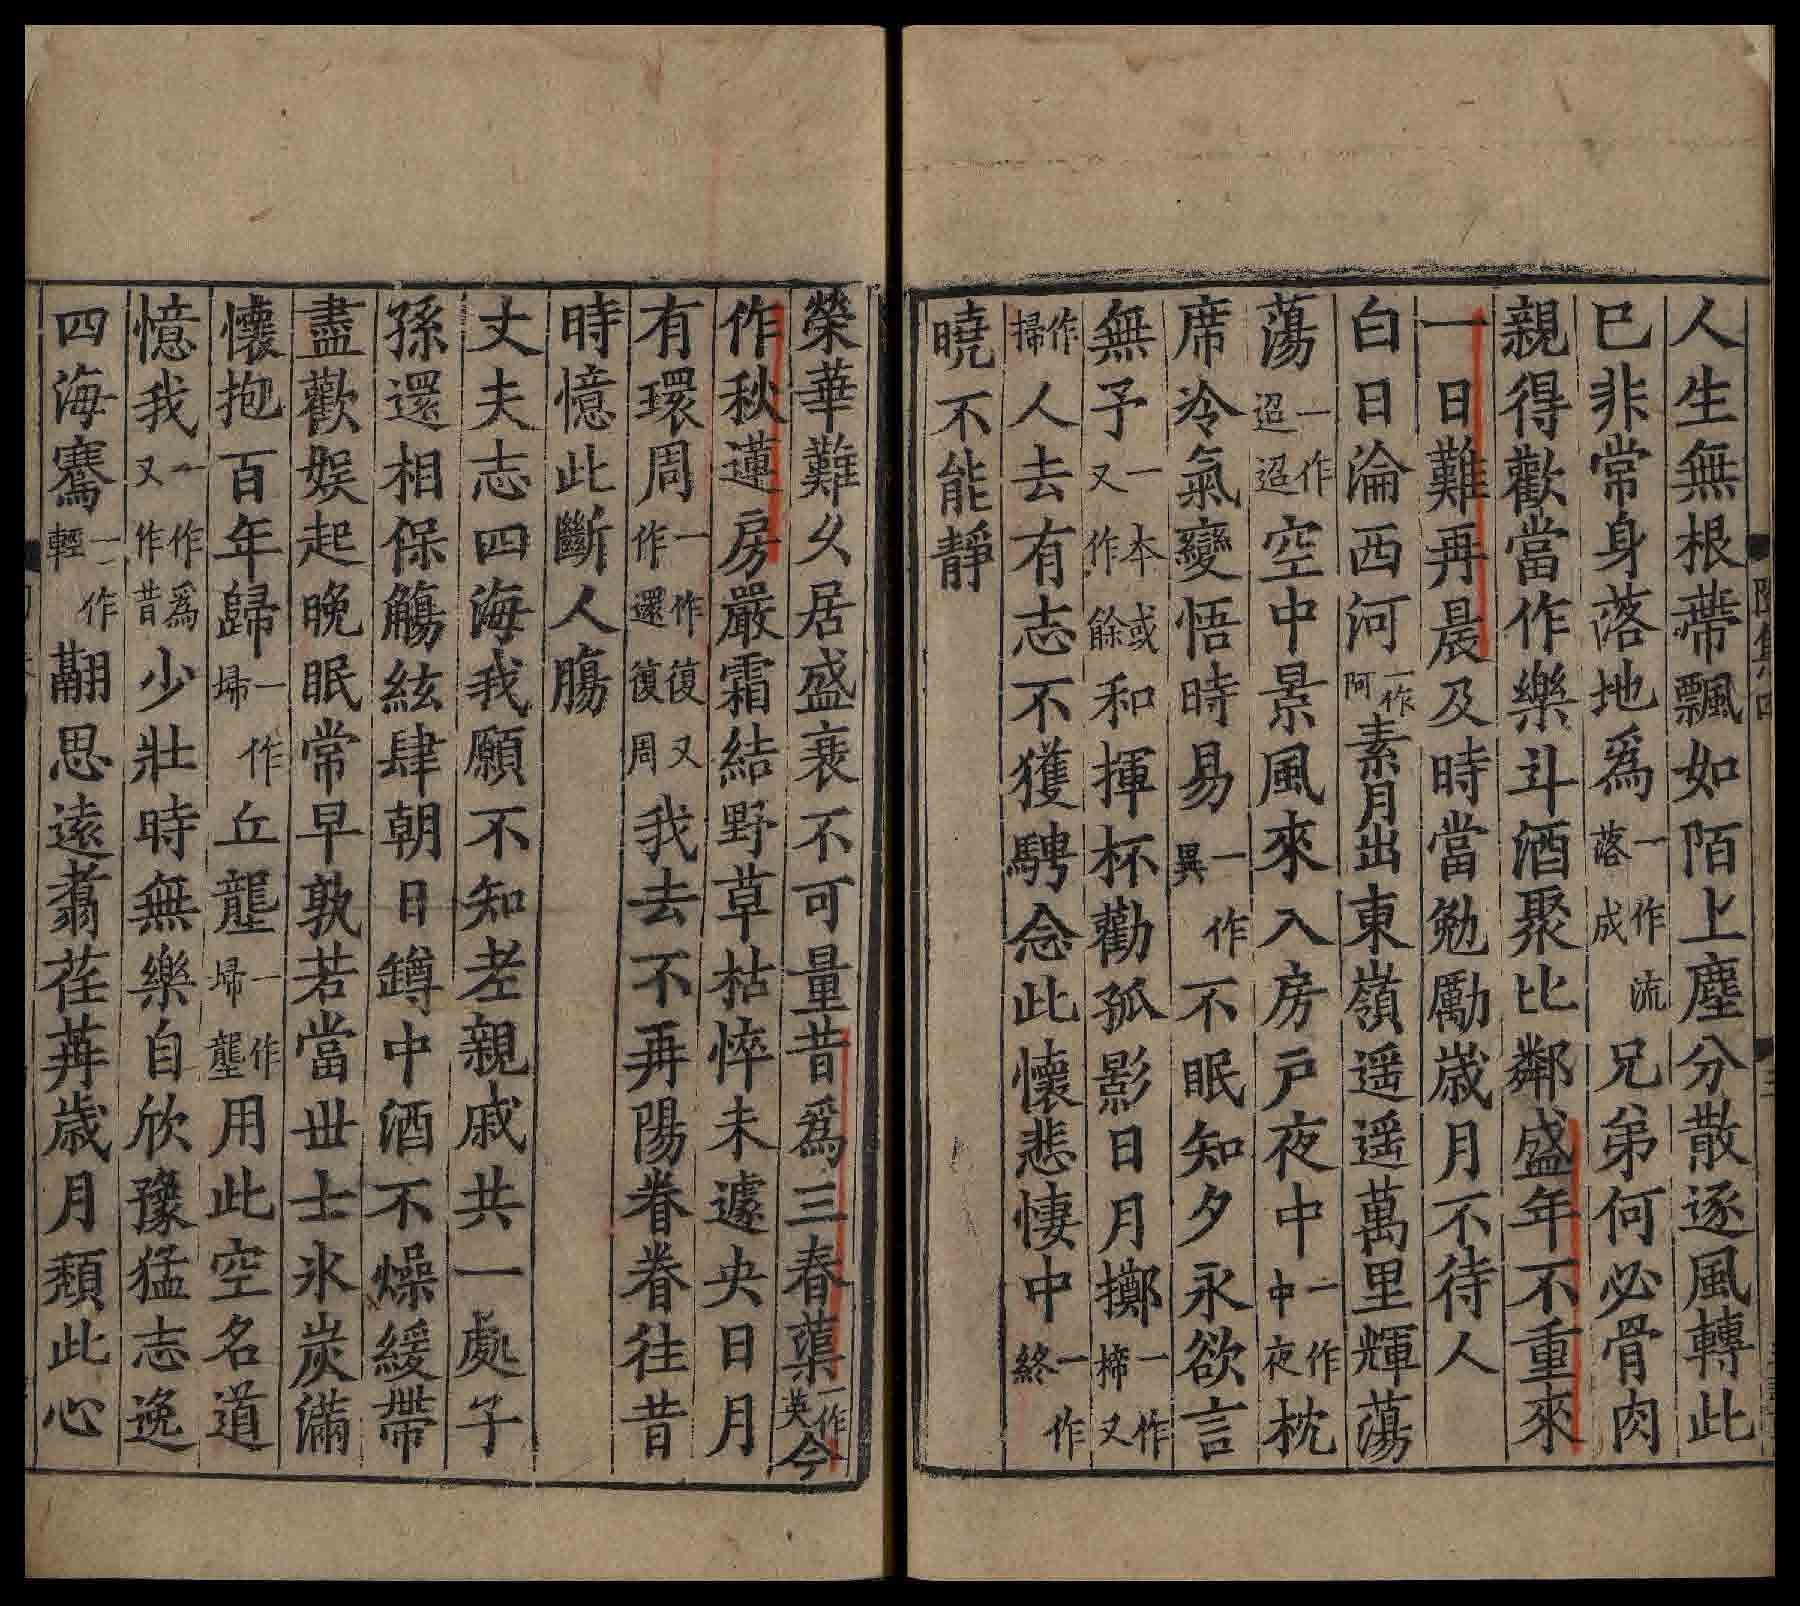 人生無根蔕飄如陌上塵分散逐風轉此
已非常身落地爲一作流落成兄弟何必骨肉
親得歡當作樂斗酒聚比鄰盛年不重來
一日難再晨及時當勉勵歲月不待人
白日淪西河一作阿素月出東嶺遥遥萬里輝蕩
蕩一作迢迢空中景風來入房戶夜中一作中夜枕
席冷氣變悟時易一作異不眠知夕永欲言
無予一本或又作餘和揮杯勸孤影日月擲一作㨖又
作掃人去有志不獲騁念此懷悲悽中一作終
曉不能靜
榮華難久居盛衰不可量昔爲三春蕖一作英今
作秋蓮房嚴霜結野草枯悴未遽央日月
有環周一作復又作還復周我去不再陽眷眷往昔
時憶此斷人腸
丈夫志四海我願不知老親戚共一處子
孫還相保觴絃肆朝日罇中酒不燥緩帶
盡歡娛起晚眠常早孰若當世士氷炭滿
懷抱百年歸一作埽丘壟一作埽壟用此空名道
憶我一作爲又作昔少壯時無樂自欣豫猛志逸
四海騫一作輕翮思遠翥荏苒歲月頹此心